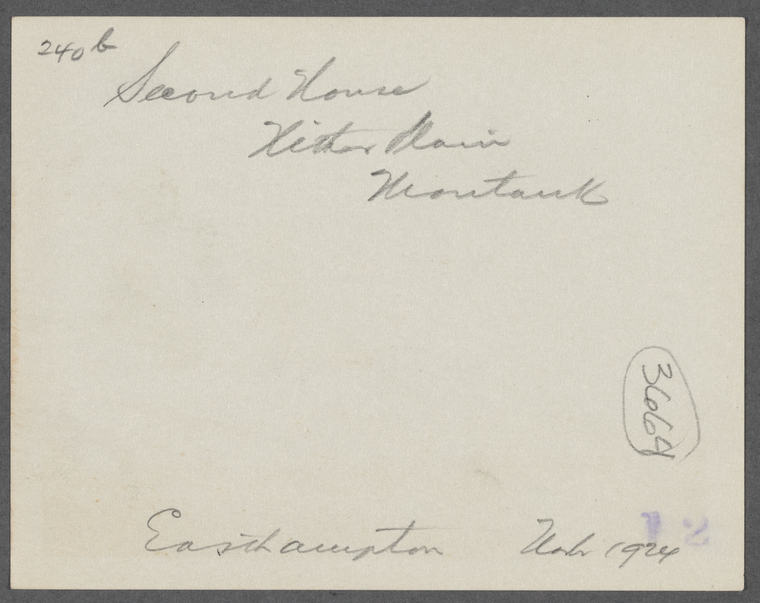 240 b
Second House
Hither Plain
Montauk
3606A
Easthampton 1924